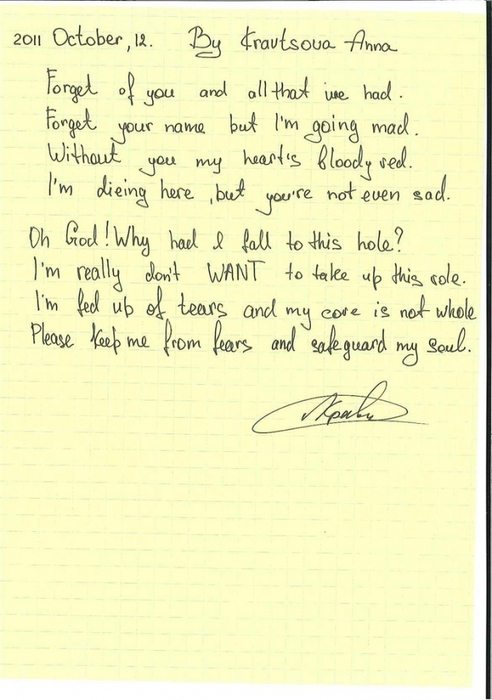 2011 October, 12. By Kravtsova Anna
Forget of you and all that we had.
Forget your name but I'm going mad.
Without you my heart's bloody red.
I'm dieing here, but you're not even sad.
Oh God! Why had I fall to this hole?
I'm really don't WANT to take up this role.
I'm fed up of tears and my core is not whole
Please keep me from fears and safeguard my soul.